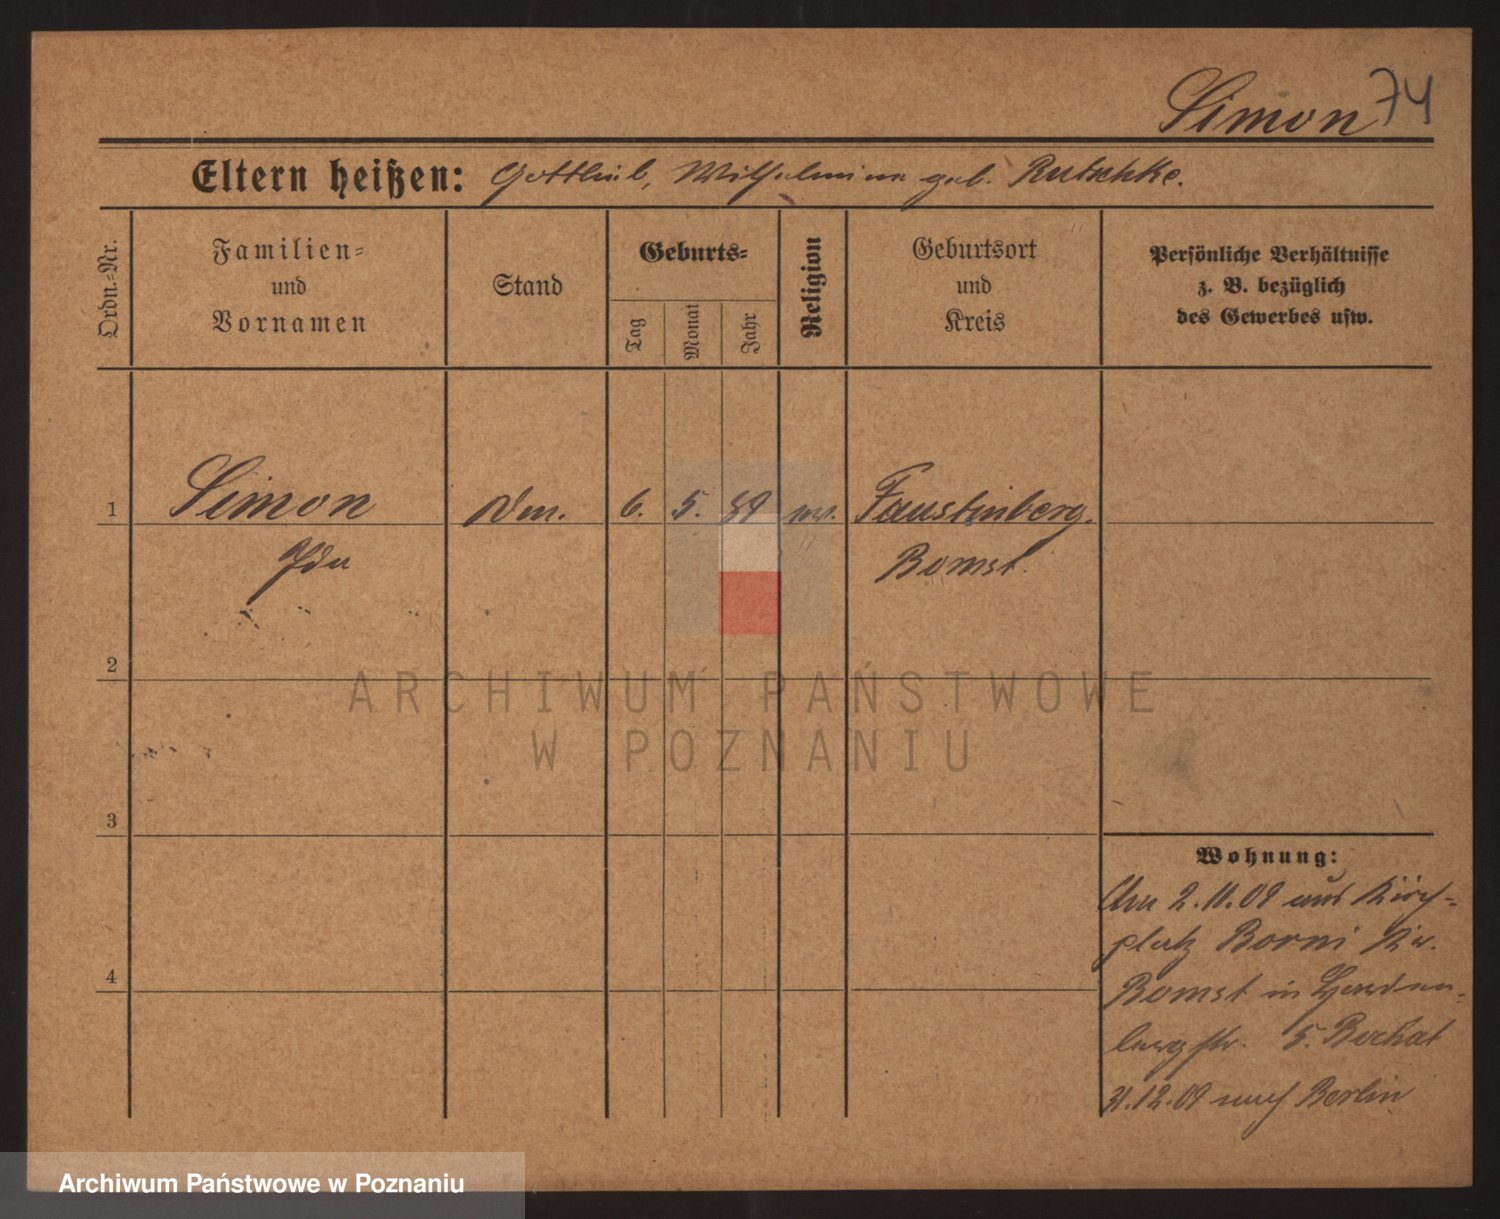 Simon 74
Eltern heißen: Gottlieb, Wilhelmine geb. Rutschke.
Ordn.-Nr.
Familien-
und
Vornamen
Stand
Geburts-
Tag
Monat
Jahr
Religion
Geburtsort
und
Kreis
Persönliche Verhältnisse
z. B. bezüglich
des Gewerbes usw.
1 Simon 6. 5. 89 Faustinberg.
Ida Bomst
2
3
4
Wohnung:
Am 2.11.09 aus Kirch-
platz Borni Kr.
Bomst in
5. Bochat
31.12.09 nach Berlin
ARCHIWUM PAŃSTWOWE
W POZNANIU
Archiwum Państwowe w Poznaniu